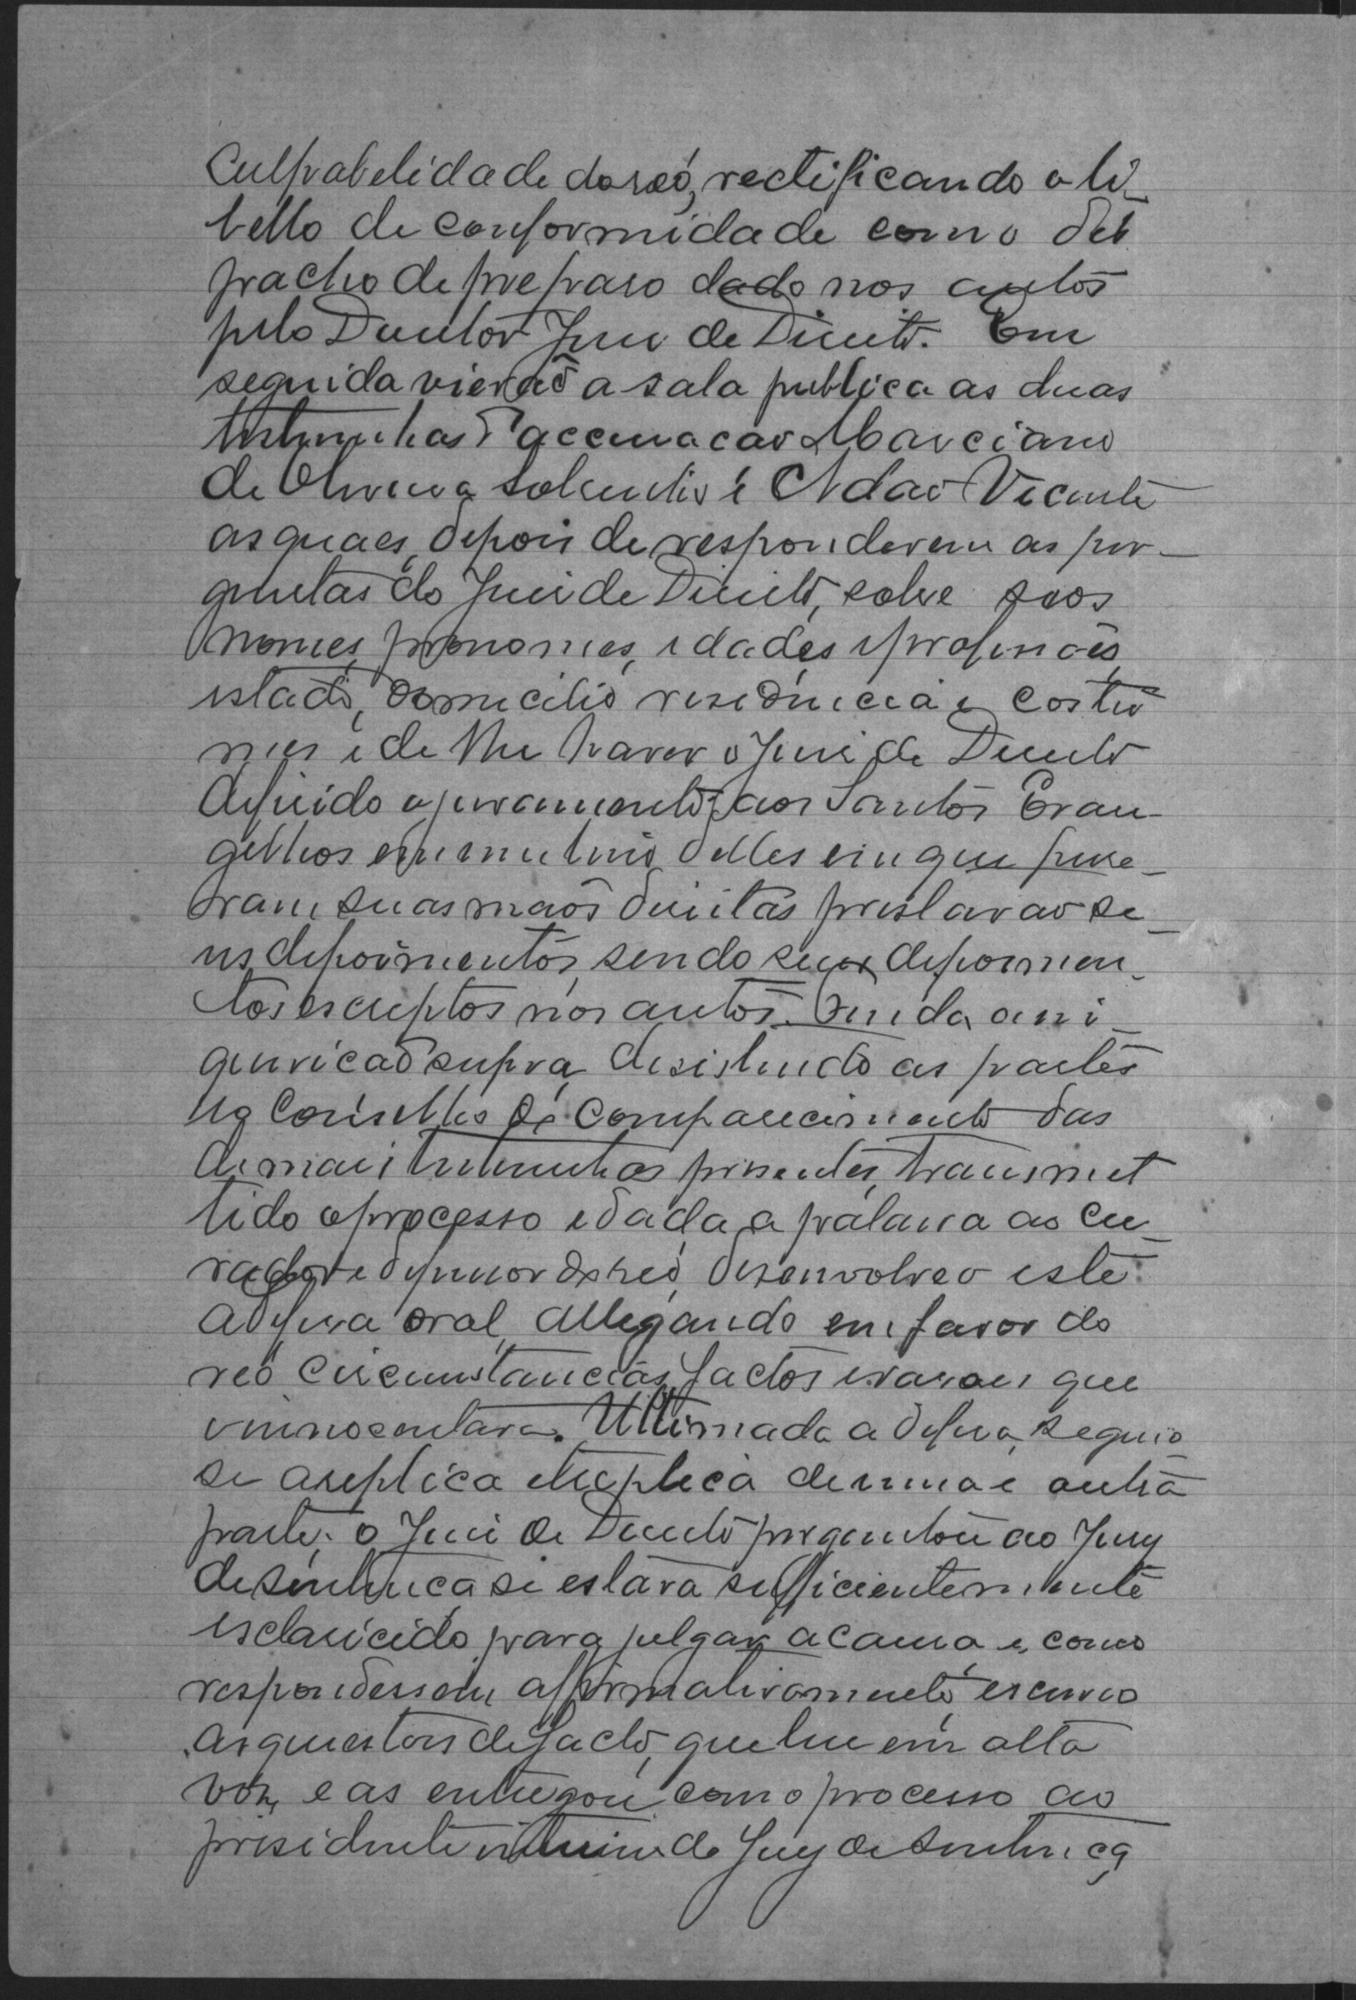 Culpabelidade do reó, rectificando o li-
bello de conformidade com o des
pacho de preparo dado nos autos
pelo Doutor Juiz de Direito. Em
seguida vierão a sala publica as duas
testemunhas d'accusacao Marciano
de Oliveira e Adão Vicente
as quaes, depois de responderem as per-
guntas do Juiz de Direito, sobre seos
nomes, pronomes, idades e profissões,
estado, domicilio residencia e costu
mes e de lhe haver o Juiz de Direito
deferido o juramento aos Santos Evan-
gelhos em um livro delles em que puse-
ram suas mãos direitas prestarão se-
us depoimentos, sendo seus depoimen-
tos escriptos nos autos. Finda a in-
quiricão supra, desistindo as partes
no Conselho do comparecimento das
demais testemunhas presentes, transmet
tido o processo e dada a palavra ao Cu-
rador e defensor do reó, desenvolveo este
a defesa oral, allegando em favor do
reó circumstancias, factos e rasoes que
o innocentava. Ultimada a defesa, seguio
se a replica e treplica de uma e outra
parte; o Juiz de Direito perguntou ao Jury
de sentença si estava sufficientemente
esclarecido para julgar a causa e, como
respondessem affirmativamente, escreveo
as questões de facto, que leu em alta
voz, e as entregou com o processo ao
presidente interino do Jury de Sentença